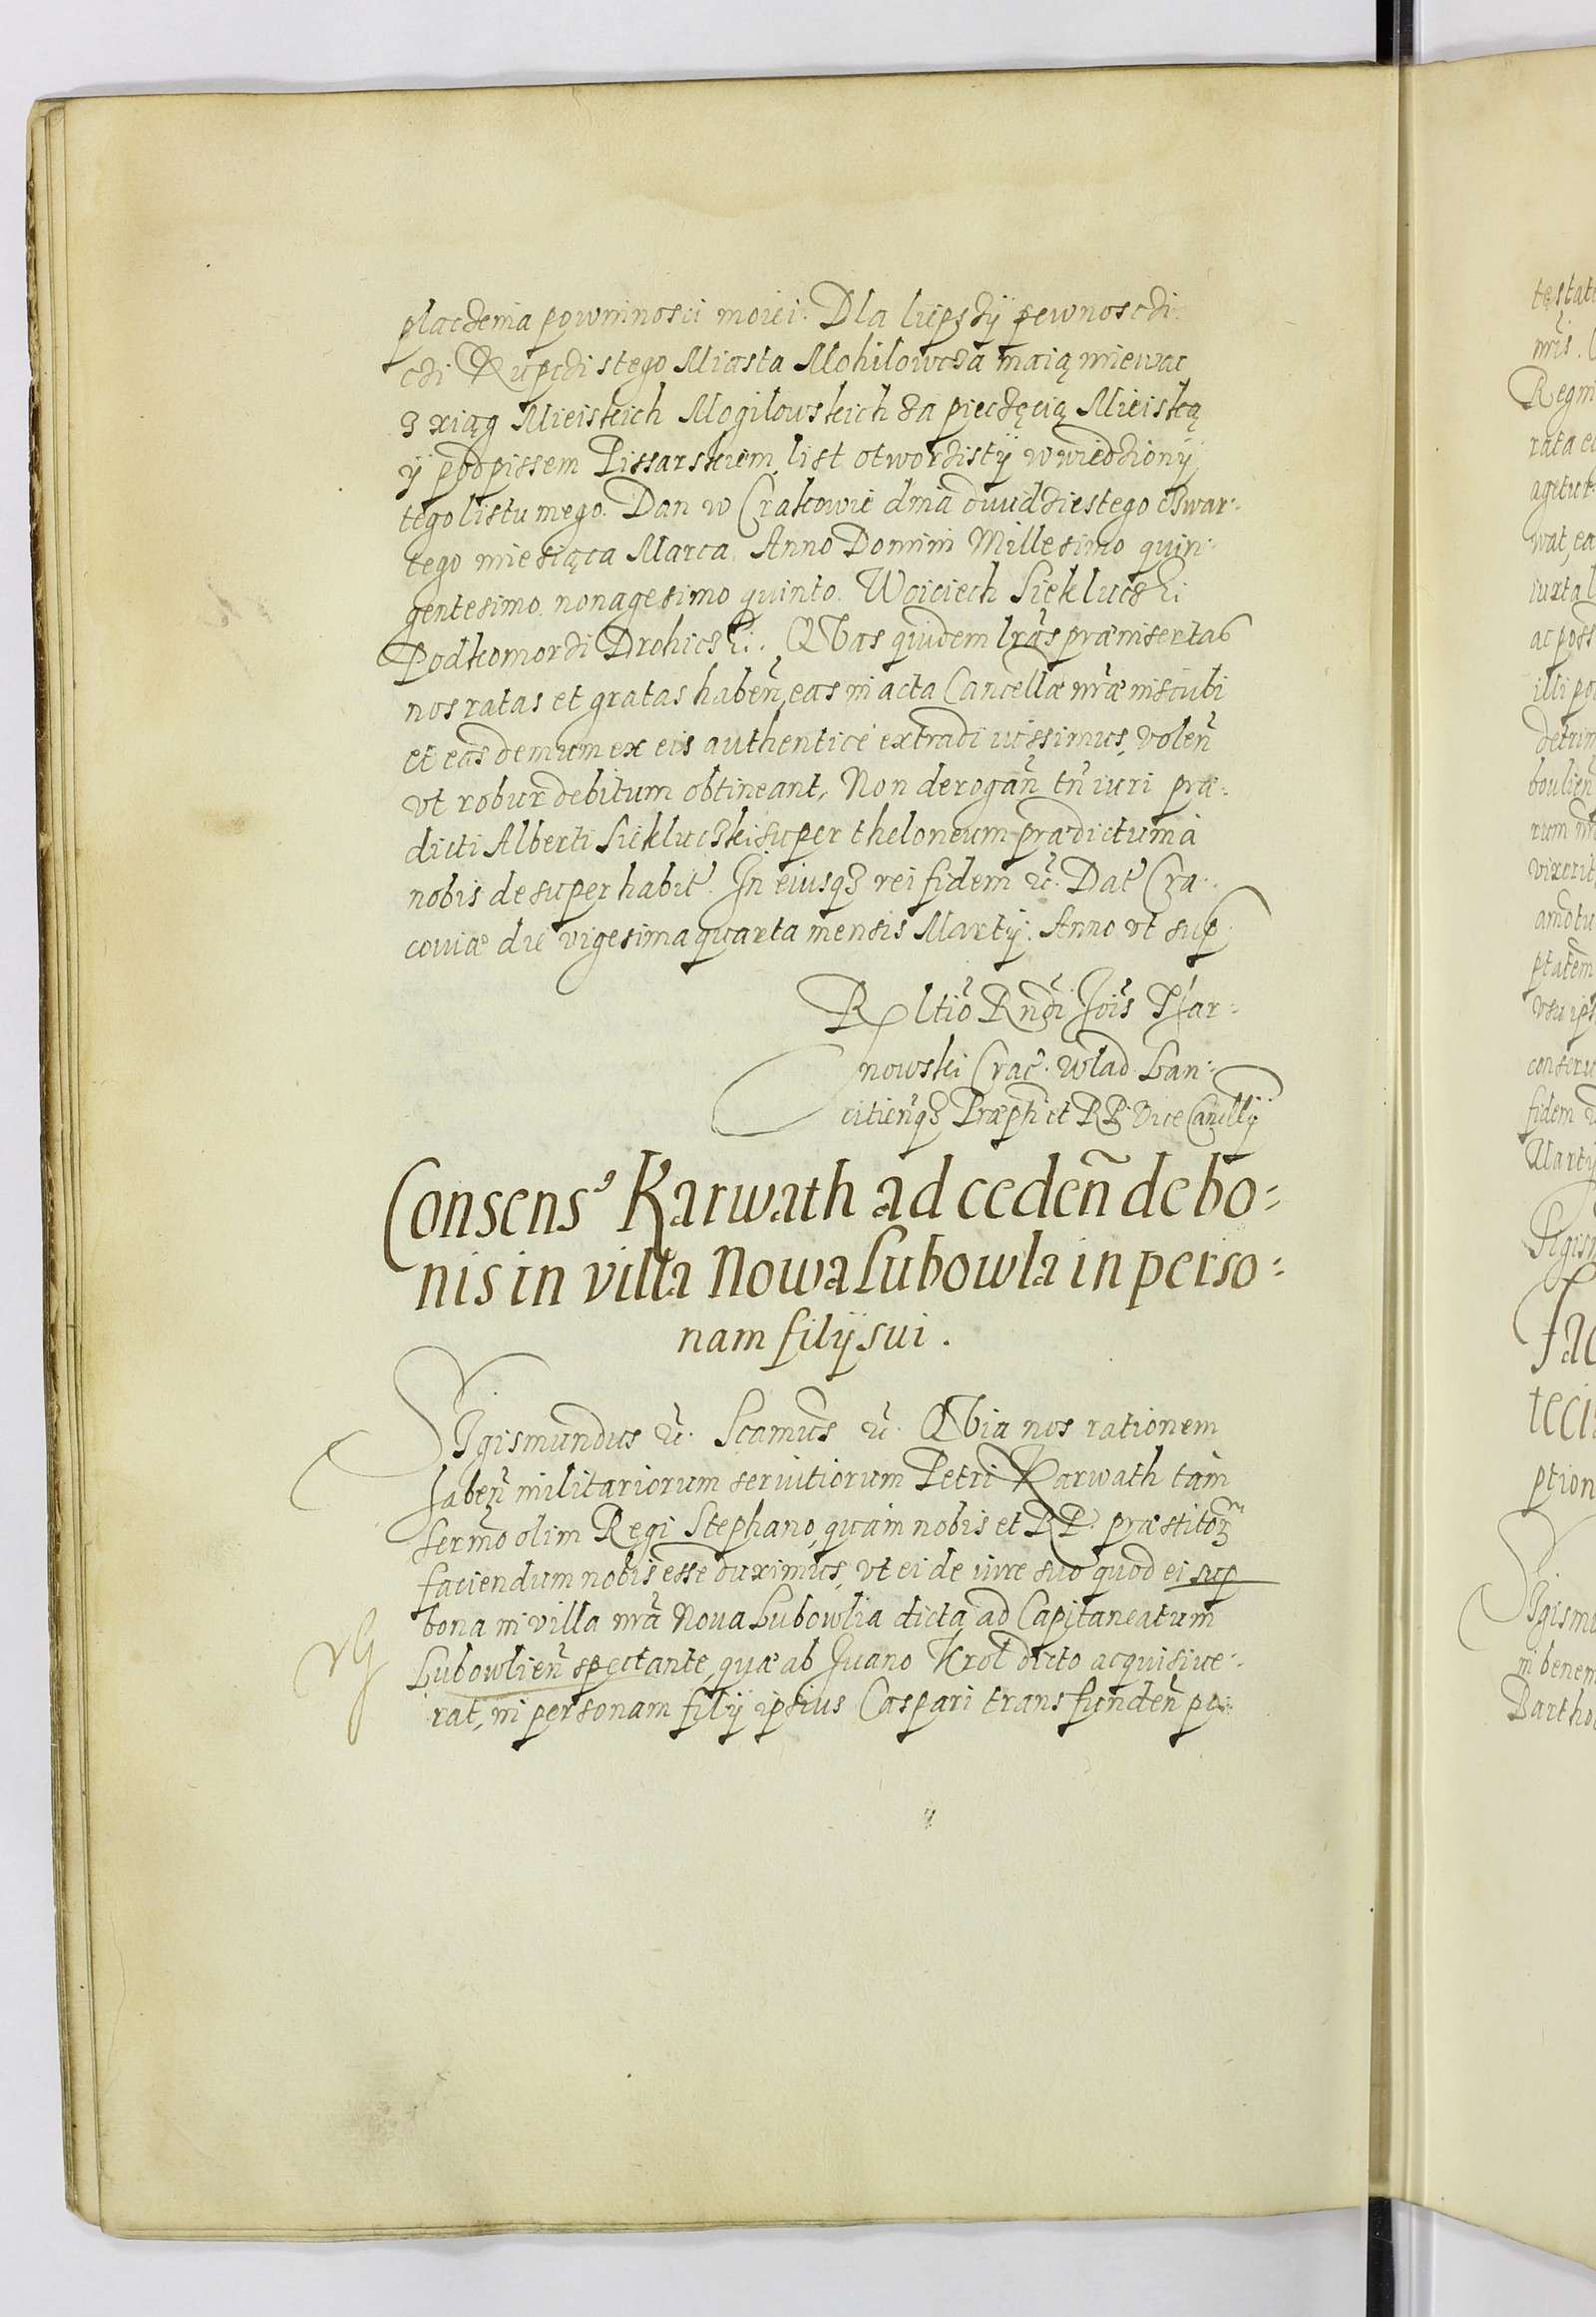 placzenia powinnosci moiei. Dla liepszÿ pewnosczi.
czi Kupczi stego Miasta Mohilowcza maią miewac
z xiąg Mieiskich Mogilowskich za pieczęcią Mieiską
ÿ podpissem Pissarskiem list otworzistÿ w wiedzionÿ
tego listu mego. Dan w Crakowie dnia dwudziestego czwar:
tego miesiąca Marca. Anno Domini Millesimo quin:
gentesimo. nonagesimo quinto. Woiciech Siekluczki
Podkomorzi Drohiczki. QVas quidem lras præinsertas
nos ratas et gratas haben̄, eas in acta Cancellæ nr̄æ inscribi
et eas demum ex eis authenticè extradi iussimus, volen̄
vt robur debitum obtineant, Non derogan̄ tn̄ iuri præ:
dicti Alberti Siekluczki super theloneum prædictum à
nobis desuper habit̄. In eiusq3 rei fidem ꝛc̄. Dat̄ Cra:
couiæ die vigesima quarta mensis Martÿ. Anno vt sup
Rltio Rndi Jois Tar:
nowski Crac̄. Wlad. Lan:
citien̄q3 Præpti et RP. Vice Cancellÿ
Consens⁹ Karwath ad ceden̄ de bo:
nis in villa Nowa Lubowla in perso:
nam filÿ sui.
SIgismundus ꝛc̄. Scamus ꝛc̄. QVia nos rationem
haben̄ militariorum seruitiorum Petri Karwath tàm
Sermo olim Regi Stephano, quàm nobis et RP. præstitor̄
faciendum nobis esse duximus, vt ei de iure suo quod ei sup
bona in villa nr̄a Noua Lubowlia dicta ad Capitaneatum
Lubowlien̄ spectante, quæ ab Iuano Krol dicto acquisiue:
rat, in personam filÿ ipsius Caspari transfunden̄ po: